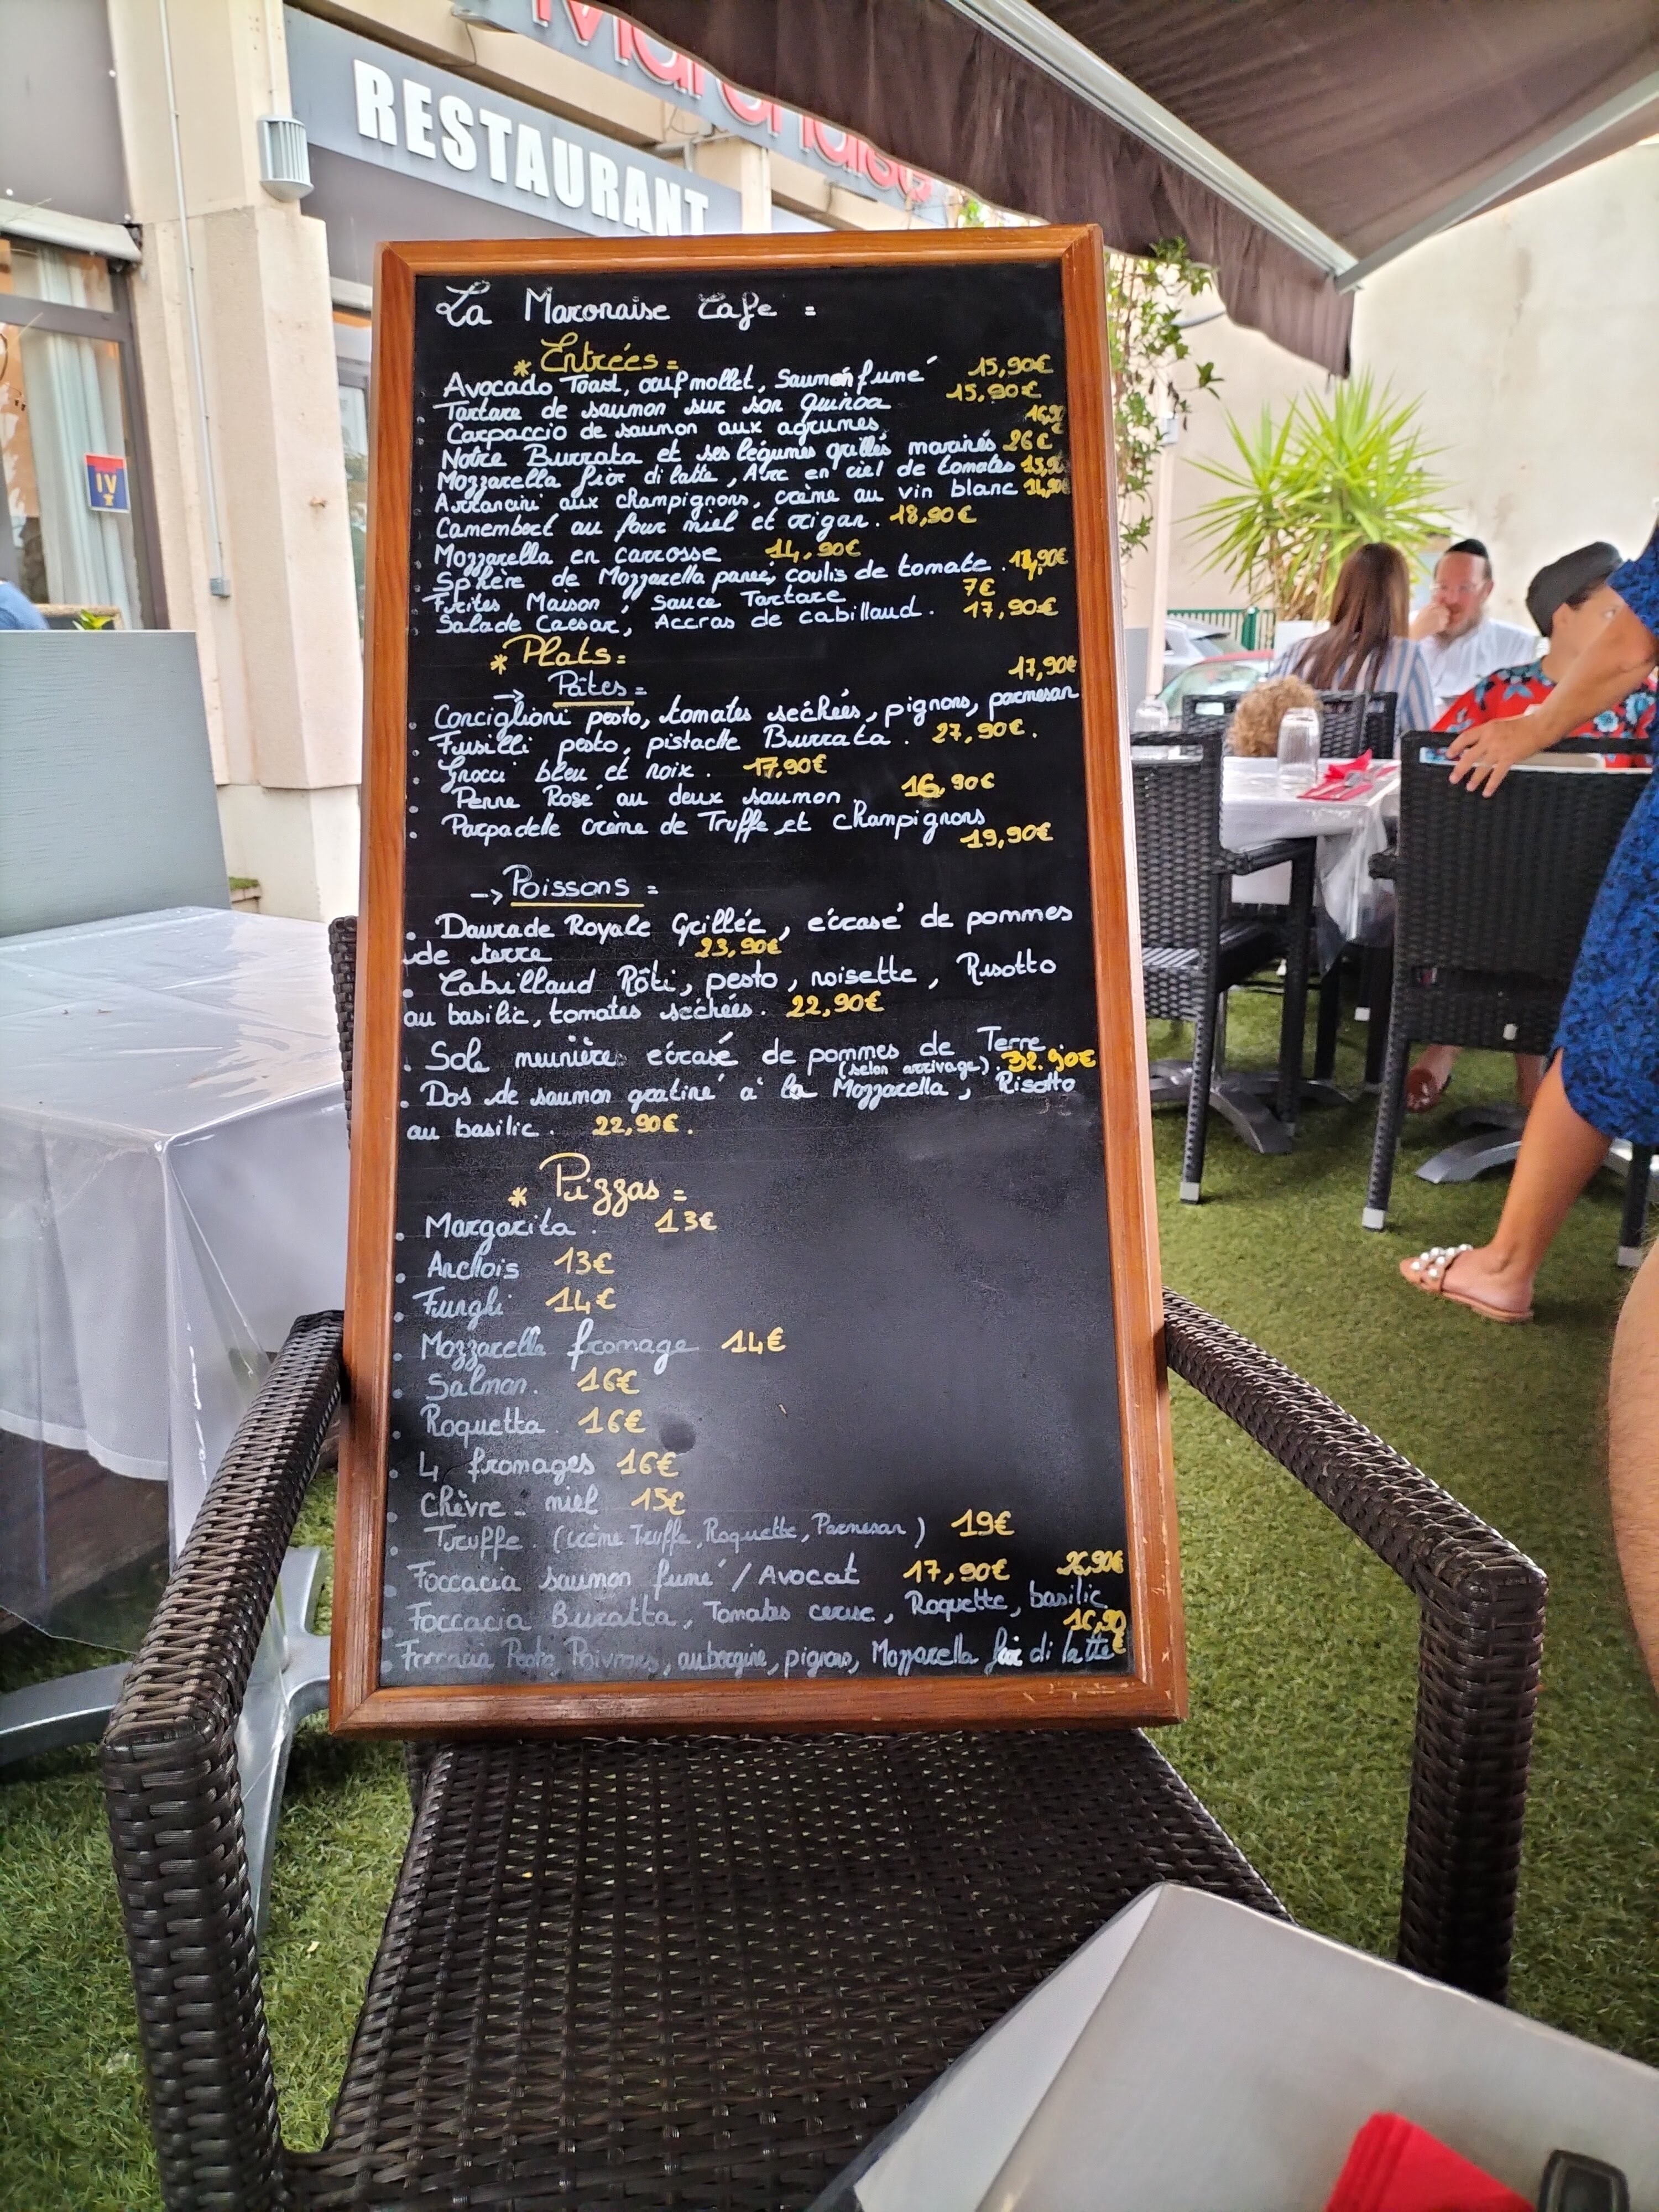 RESTAURANT
Maronaise
IV
La Maronaise Cafe =
* Entrées =
Avocado Toast, oeuf mollet, Saumon fumé 15,90€
. Tartare de saumon sur son Quinoa 15,90€
. Carpaccio de saumon aux agrumes 16,90€
. Notre Burrata et ses légumes grillés marinés 26€
. Mozzarella fior di latte, Arc en ciel de tomates 15,90
. Arrancini aux champignons, crème au vin blanc 14,90€
. Camembert au four miel et origan. 18,90€
. Mozzarella en carrosse 14,90€
. Sphère de Mozzarella panée, coulis de tomate. ,90€
. Frites Maison, Sauce Tartare 7€
. Salade Caesar, Accras de cabillaud. 17,90€
* Plats =
-> Pâtes =
17,90€
. Conciglioni pesto, tomates sechées, pignons, parmesan
. Fusilli pesto, pistache Burrata. 27,90€.
. Gnocci bleu et noix. 17,90€
. Penne Rosé au deux saumon. 16,90€
. Parpadelle crème de Truffe et champignons
19,90€
-> Poissons =
. Daurade Royale Grillée, écrasé de pommes
de terre 23,90€
. Cabillaud Rôti, pesto, noisette, Risotto
au basilic, tomates sechées. 22,90€
. Sole meunière écrasé de pommes de Terre.
(selon arrivage). 32.90€
. Dos de saumon gratiné à la Mozzarella, Risotto
au basilic. 22,90€.
* Pizzas =
. Margarita. 13€
. Anchois 13€
. Funghi 14€
. Mozzarella fromage 14€
. Salmon. 16€
. Roquetta. 16€
. 4 fromages 16€
. Chèvre - miel 15€
. Truffe. (crème Truffe, Roquette, Parmesan) 19€
. Foccacia saumon fumé / Avocat 17,90€
26,90€
. Foccacia Buratta, Tomates cerise, Roquette, basilic
16,90€
. Foccacia Pesto, Poivrons, aubergine, pignons, Mozzarella fior di latte